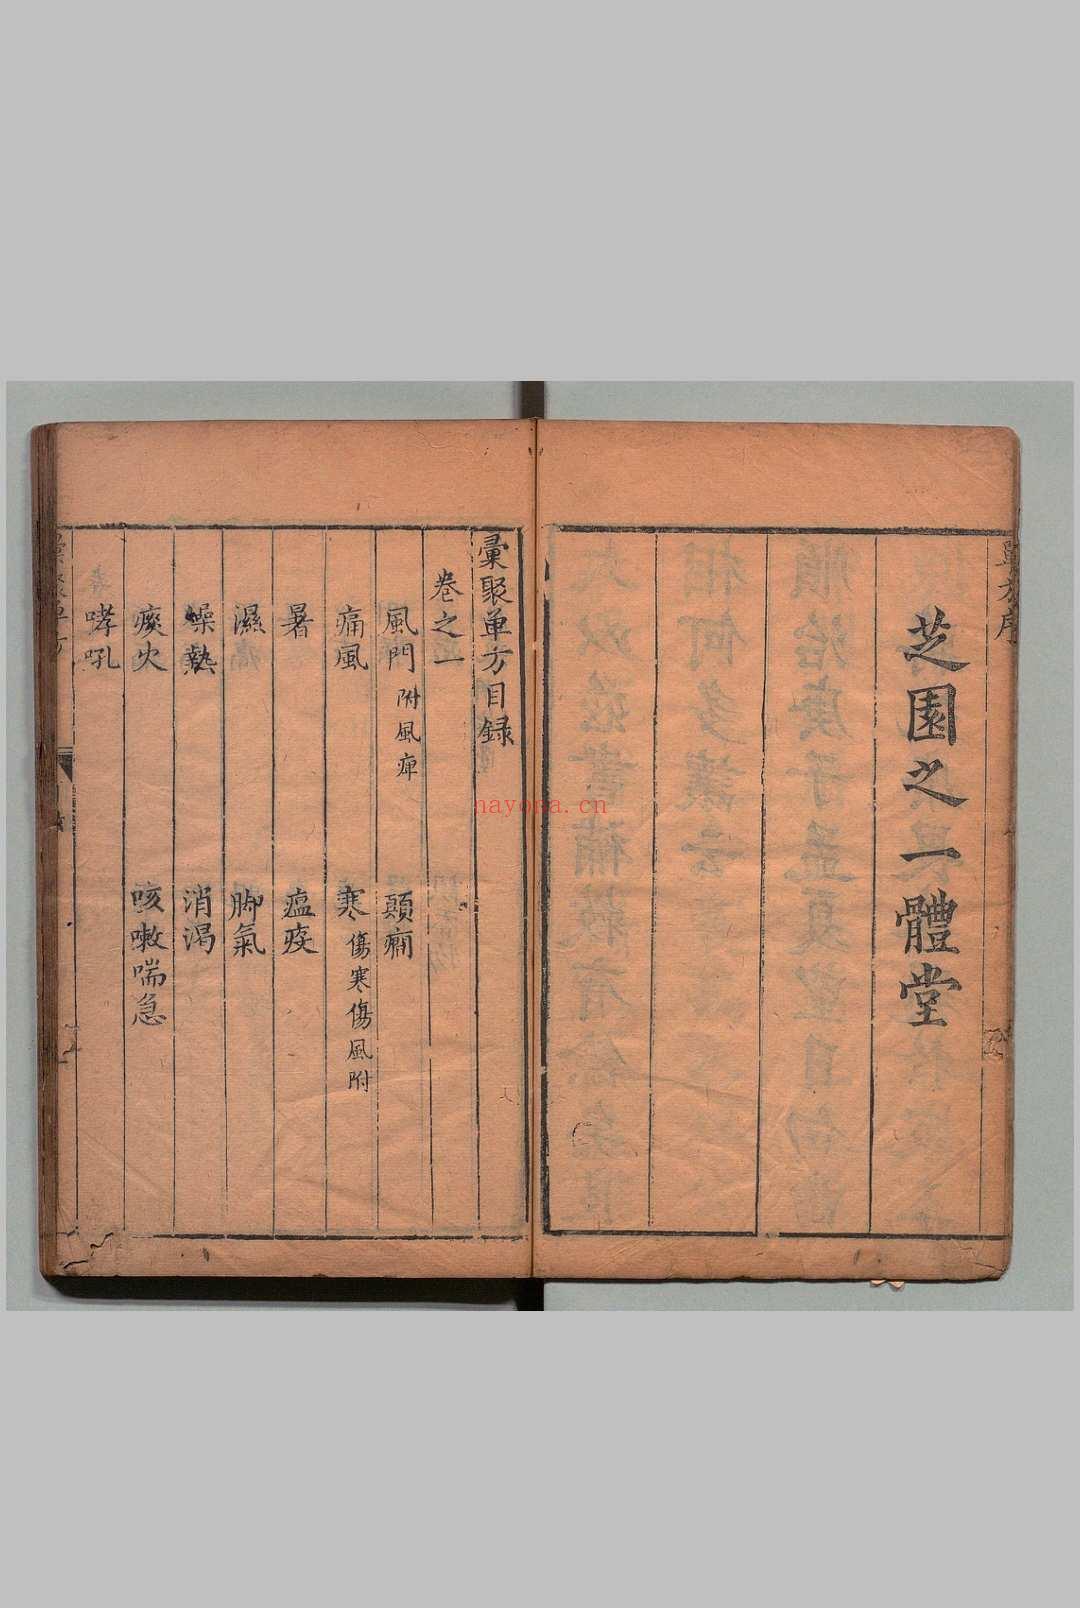 單方序
芝園之一體堂
彙聚單方目録
卷之一
風門 附風痺
顛癇
痛風
寒 傷寒傷風附
暑
瘟疫
濕
脚氣
燥熱
消渴
痰火
咳嗽喘急
哮吼
彙聚單方
nayona.cn